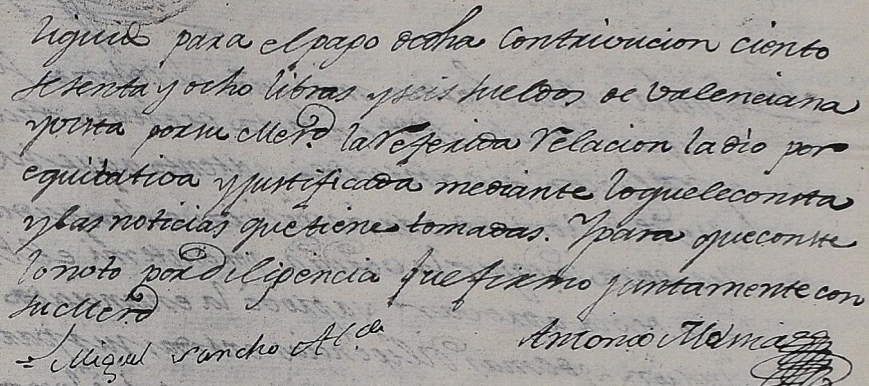 liquid para el pago dedha Contrivucion ciento
setenta y ocho libras y seis sueldos de valenciana
y vista por su Merd. la referida relacion la dio por
equitativa y justificada mediante loque le consta
y las noticias que tiene tomadas. Y para que conste
lo noto por diligencia que firmo juntamente con
su Merd
Miguel Sancho Al.de Antonio